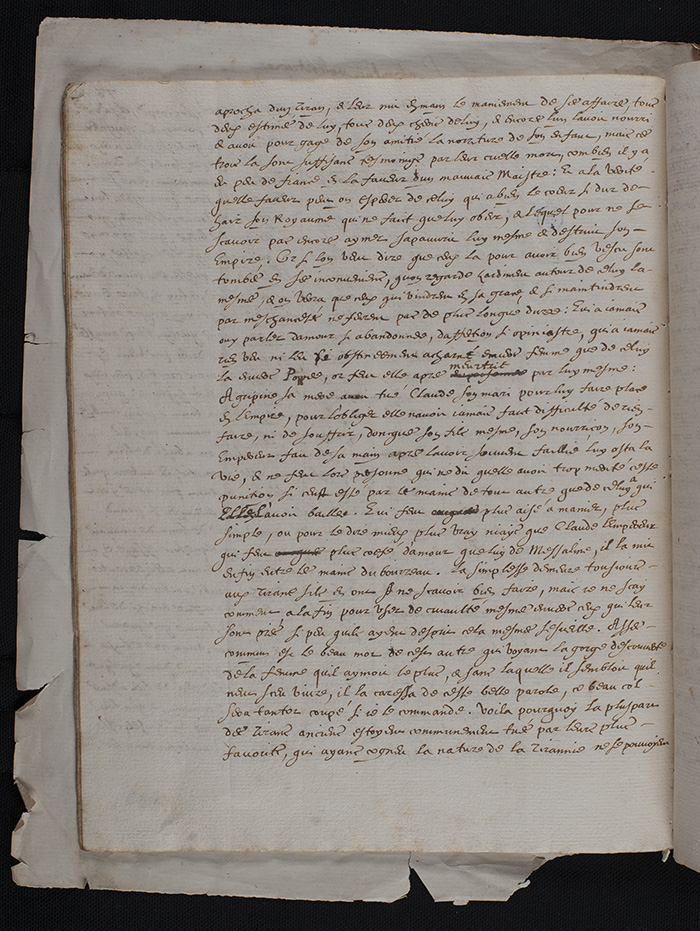 aprocha d'un Tiran, & leur mit en main le maniement de ses affaires, tous
deux estimes de luy, tous deux cheris de luy, & encore l'un l'avoit nourri
& avoit pour gage de son amitié la nourriture de son enfance, mais ces
trois la sont suffisans tesmoings par leur cruelle mort, combien il y a
de peu de fiance en la faveur d'un mauvais Maistre: Et a la verité
quelle faveur peut on esperer de celuy qui a bien le coeur si dur de
hair son Royaume qui ne fait que luy obeir, & lequel pour ne se
scavoir pas encore aymer sapauvrit luy mesme & destruit son
Empire. Or si l'on veut dire que ceux la pour avoir bien vescu sont
tombes en ses inconveniens, quon regarde hardiment autour de celuy la
mesme, & on verra que ceux qui vindrent en sa grace & si maintindrent
par meschancetes ne furent pas de plus longue duree: Qui a iamais
ouy parler d'amour si abandonnee, d'affection si opiniastre, qui a iamais
rien veu ni leu si obstinement acharné envers femme que de celuy
la envers Popee, or feut elle apres meurtrit par luy mesme:
Agripine sa mere avoit tué Claude son mari pour luy faire place
en l'Empire, pour l'obliger elle n'avoit iamais faict difficulté de rien
faire, ni de souffrir, doncque son fils mesme, son nourrisson, son
Empereur fait de sa main apres l'avoir souvent faillie luy osta la
vie, & ne feut lors personne qui ne dit quelle avoit trop merité ceste
punition si ceust esté par les mains de tout autre que de celuy a qui
Elle l'avoit baillee. Qui feut plus aisé a manier, plus
simple, ou pour le dire mieux plus vray niais que Claude l'empereur
qui feut plus coeffé d'amour que luy de Messaline, il la mit
enfin entre les mains du bourreau. La simplesse demeure tousiours
aux Tirans s'ils en ont A ne scavoir bien faire, mais ie ne scay
comment a la fin pour user de cruauté mesme envers ceux qui leur
sont pres si peu qu'ils ayent d'esprit cela mesme s'esveille. Asses
commun est le beau mot de cest autre qui voyant la gorge descouverte
de la femme qu'il aymoit le plus, & sans laquelle il sembloit quil
neust sceu vivre, il la caressa de ceste belle parole, ce beau col
sera tantot coupé si ie le commande. Voila pourquoy la pluspart
des Tirans anciens estoyent communement tués par leurs plus
favoris, qui ayans cogneu la nature de la Tirannie ne se pouvoyent